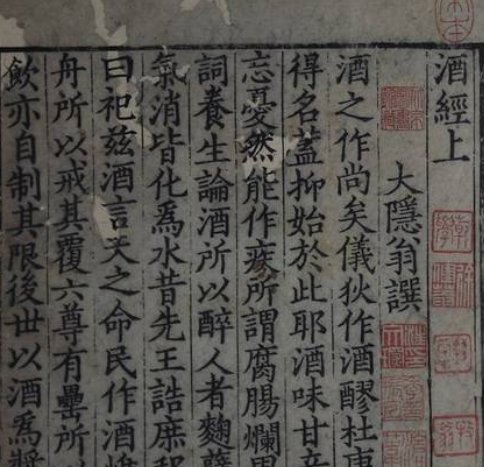 酒經上
大隱翁譔
酒之作尚矣儀狄作酒醪杜康
得名蓋抑始於此耶酒味甘辛
忘憂然能作疾所謂腐腸爛胃
詞養生論酒所以醉人者麴蘖
氣消皆化爲水昔先王誥庶邦
曰祀茲酒言天之命民作酒惟
舟所以戒其覆六尊有罍所以
飲亦自制其限後世以酒爲漿